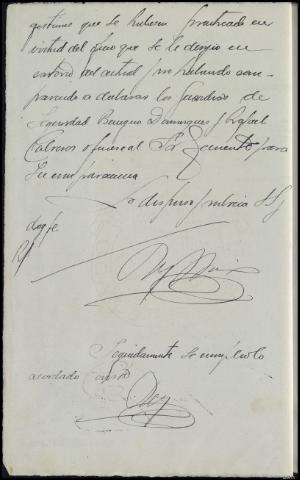 gestiones que se hubieren practicado en
virtud del oficio que se le dirigio en
catorce del actual, y no habiendo com-
parecido a declarar los Guardias de
Seguridad Benigno Dominguez y Rafael
Cabrero oficiese al Sr Comente para
su comparecencia
Lo dispuso y rubrica SSª
doy fe
Seguidamente se cumple lo
acordado doy fe